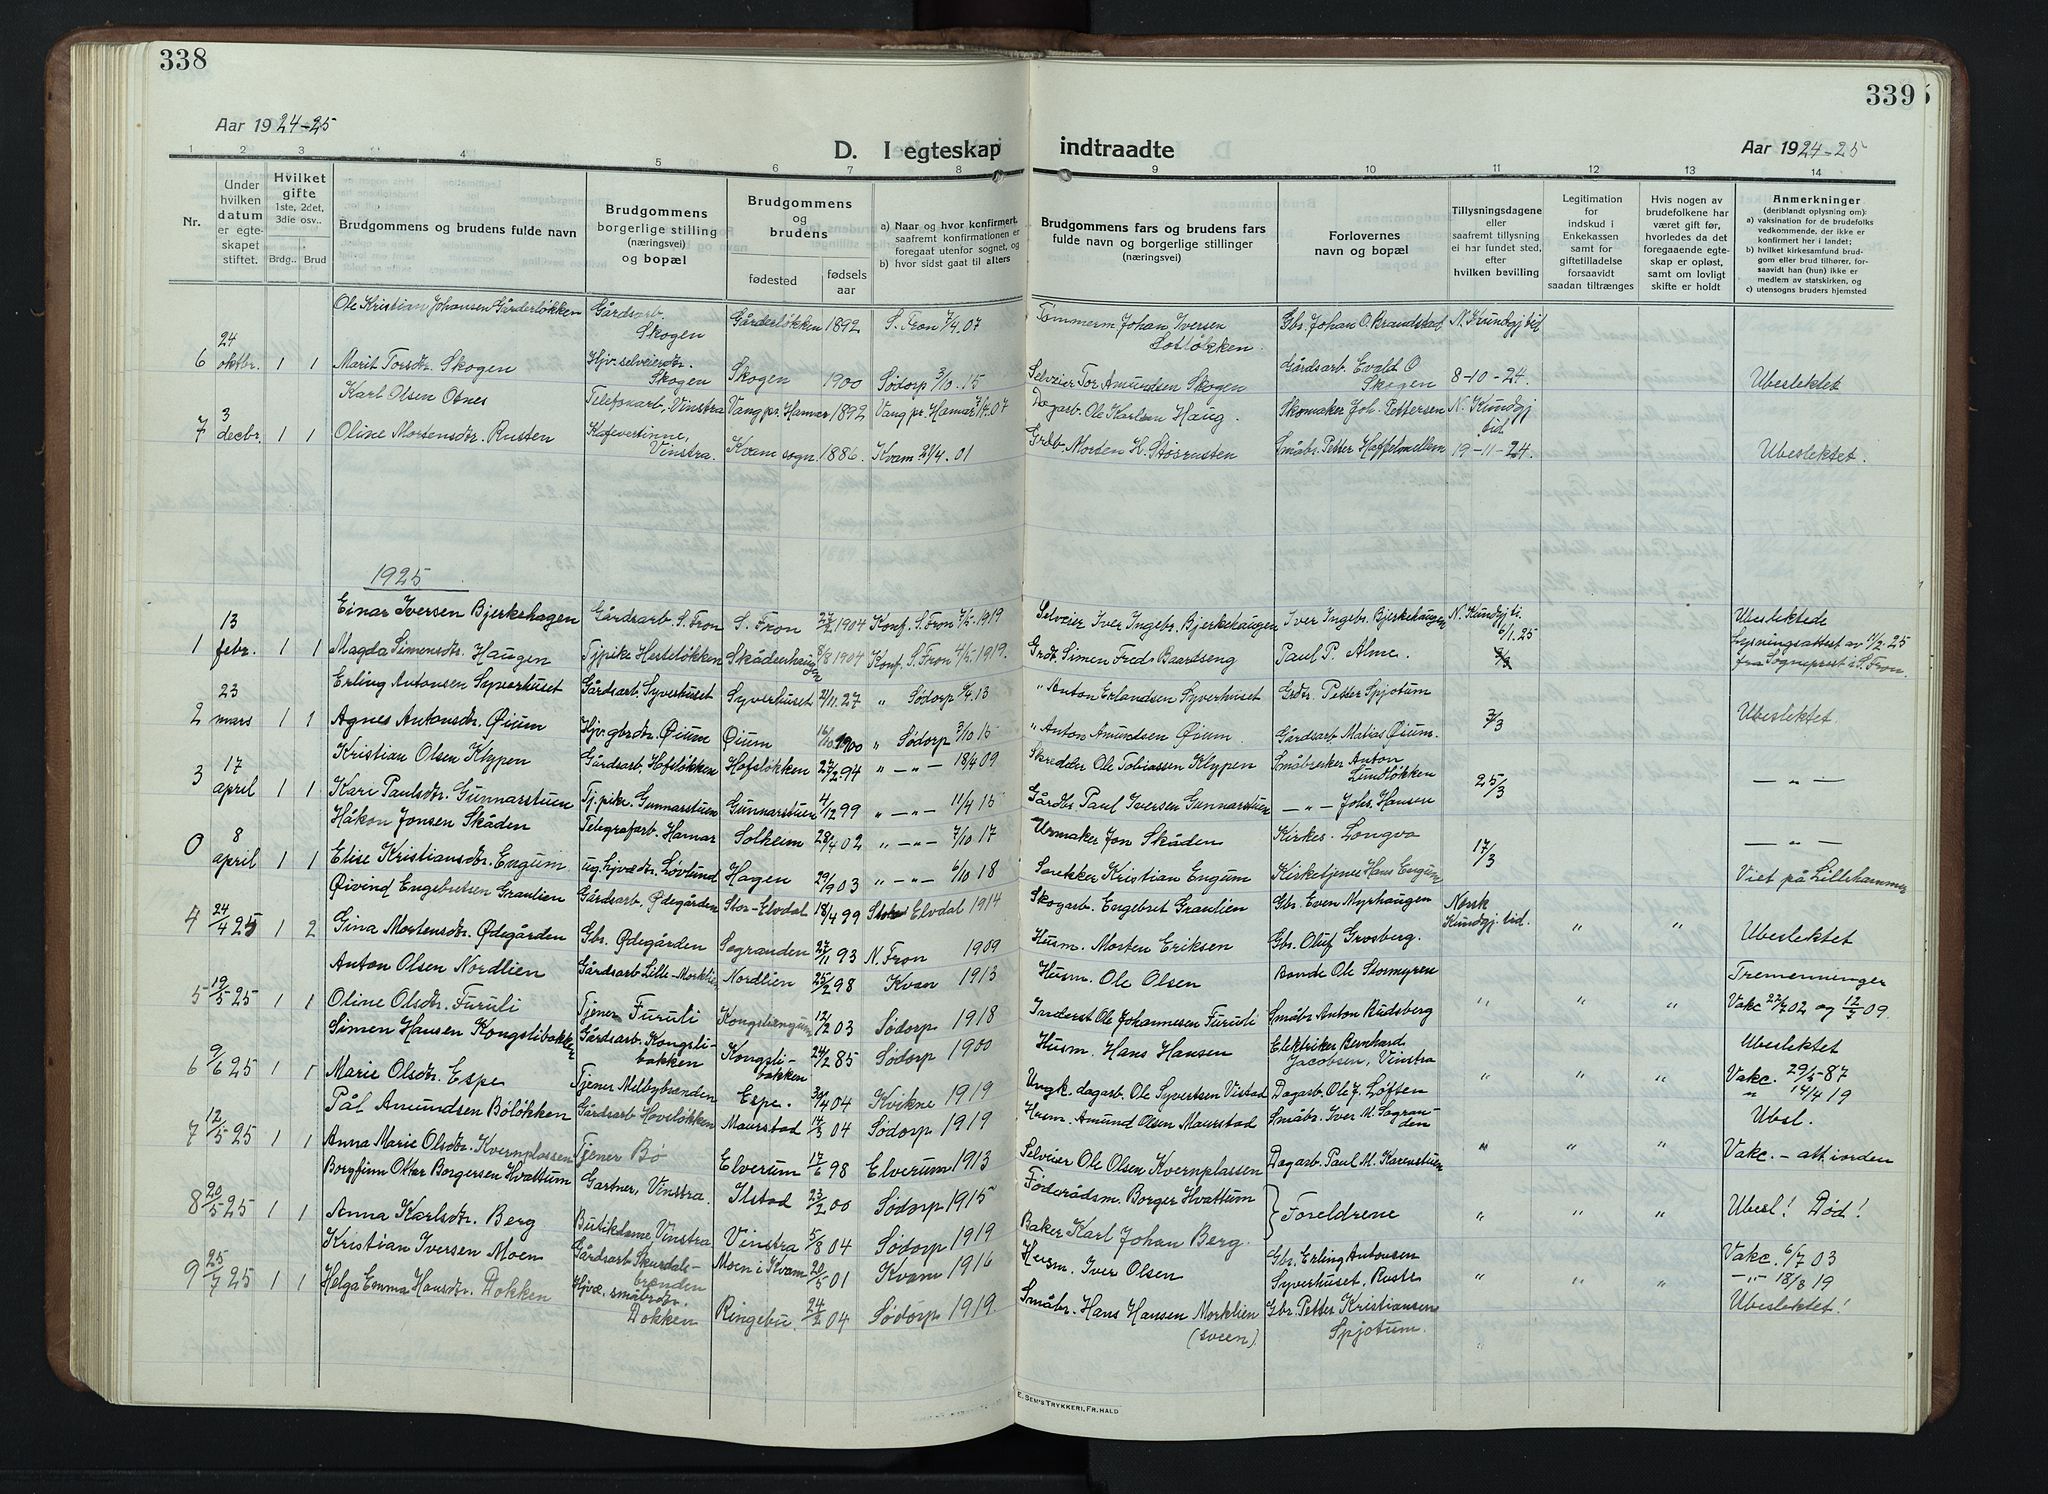 338
339
Aar 1924-25
D. I egteskap indtraadte
Aar 1924-25
1 2 3 4 5 6 7 8 9 10 11 12 13 14
Nr.
Under hvilken datum er egteskapet stiftet.
Hvilket gifte 1ste, 2det, 3die osv..
Brdg.. Brud
Brudgommens og brudens fulde navn
Brudgommens borgerlige stilling (næringsvei) og bopæl
Brudgommens og brudens
fødested
fødsels aar
a) Naar og hvor konfirmert, saafremt konfirmationen er foregaat utenfor sognet, og
b) hvor sidst gaat til alters
Brudgommens fars og brudens fars fulde navn og borgerlige stillinger (næringsvei)
Forlovernes navn og bopæl
Tillysningsdagene eller saafremt tillysning ei har fundet sted, efter hvilken bevilling
Legitimation for indskud i Enkekassen samt for giftetilladelse forsaavidt saadan tiltrænges
Hvis nogen av brudefolkene har været gift før, hvorledes da det foregaaende egteskap er opløst, samt om lovlig skifte er holdt
Anmerkninger (deriblandt oplysning om):
a) vaksination for de brudefolks vedkommende, der ikke er konfirmert her i landet;
b) hvilket kirkesamfund brudgom eller brud tilhører, forsaavidt han (hun) ikke er medlem av statskirken, og
c) utensogns bruders hjemsted
Ole Kristian Johansen Gårderløkken Gårdsarb. Skogen Gårderløkken 1892 S. Fron 7/4.07 Tømmerm. Johan Iversen Gbr. Johan O. Brandstad. N. Kundgj tid
6 24 oktbr. 1 1 Marit Torsdtr. Skogen Hjv. selveierdtr. Skogen Skogen 1900 Sødorp 3/10.15 Selveier Tor Amundsen Skogen Gårdsarb. Evald O Skogen 8-10-24. Ubeslektet
Karl Olsen Otnes Telefonarb. Vinstra Vang pr. Hamar 1892 Vang pr. Hamar 7/4.07 Dagarb. Ole Karlsen Haug. Skomaker Joh. Pettersen N. Kundgj tid
7 3 decbr. 1 1 Oline Mortensdtr. Rusten Kafevertinne, Vinstra. Kvam sogn. 1886. Kvam 21/4.01 Grdb. Morten H. Storrusten Småbr. Petter Haffelmellem 19-11-24. Ubeslektet.
1925
Einar Iversen Bjerkehagen Gårdsarb. S. Fron S. Fron 27/2 1904 Konf. S. Fron 7/5-1919 Selveier Iver Ingebr. Bjerkehaugen Iver Ingebr. Bjerkehaugen N. Kundgj ti. 6/1.25 Ubeslektede
1 13 febr. 1 1 Magda Simensdtr. Haugen Tjpike Hesteløkken Skådeerhaugen 8/8 1904 Konf. S. Fron 4/5-1919. Grdbr. Simen Fredr. Baardseng Paul P. Alme. Lysningsattest av 11/2-25 fra Sogneprest i S. Fron.
Erling Antonsen Syverhuset Gårdsarb. Syverhuset Syverhuset 21/11.27 " Sødorp 6/4.13 " Anton Erlandsen Syverhuset Grdbr. Petter Spjotum
2 23 mars 1 1 Agnes Antonsdtr. Øium Hjv. gbrdtr. Øium Øium 16/10 1900 " Sødorp 3/10.15 " Anton Amundsen Øium. Gårdsarb. Matias Øium. 3/3 Ubeslektet.
Kristian Olsen Klypen Gårdsarb. Hofsløkken Hofsløkken 27/2 94 " — " — 18/4 09 Skredder Ole Tobiassen Klypen Småbruker Anton Lundløkken
3 17 april 1 1 Kari Paulsdtr. Gunnarstuen Tj. pike. Gunnarstuen Gunnarstuen 4/12 99 " — " — 11/4 15 Gårdbr. Paul Iversen Gunnarstuen — " — Johs. Hansen 25/3 — " —
Håkon Jonsen Skåden Telegrafarb. Hamar Solheim 28/4 02 " — " — 7/10 17 Urmaker Jon Skåden Kirkes. Longva
0 8 april 1 1 Elise Kristiansdtr. Engum ug. hjvdtr. Løvlund Hagen 29/9 03 " — " — 6/10 18 Kristian Engum Kirketjener Hans Engum 17/3 — " — Viet på Lillehammer
Øivind Engebretsen Granlien Gårdsarb. Ødegården Stor-Elvdal 18/4 99 Stor Elvdal 1914 Skogarb. Engebret Granlien Gbr. Even Myrhaugen Norsk
4 24/4 25 1 2 Gina Mortensdtr. Ødegården Gbr. Ødegården Sogranden 27/11 93 N. Fron 1909 Husm. Morten Eriksen Gbr. Oluf Grosberg. Kundgj. tid. " " Ubeslektet
Anton Olsen Nordlien Gårdsarb. Lille-Morklien Nordlien 25/2 98 Kvam 1913 Husm. Ole Olsen Bonde Ole Stormyren Tremenninger
5 19/5 25 1 1 Oline Olsdtr. Furuli Tjener Furuli Kongsliengum 12/2 03 Sødorp 1918 Inderst Ole Johannesen Furuli Småbr Anton Rudsberg " " " Vakc. 22/7 02 og 12/7 09.
Simen Hansen Kongslibakken Gårdsarb. Kongslibakken Kongslibakken 24/2 85 Sødorp 1900 Husm. Hans Hansen Elektriker Bernhard Jacobsen, Vinstra Ubeslektet
6 9/6 25 1 1 Marie Olsdtr. Espe Tjener Melbybrenden Espe. 30/4 04 Kvikne 1919 Ungk. dagarb. Ole Syvertsen Vistad Dagarb. Ole J. Løften " " " Vakc. 29/5-87
" 14/4 19
Pål Amundsen Bøløkken Gårdsarb Hovsløkken Maurstad 17/3 04 Sødorp 1919 Husm. Amund Olsen Maurstad Småbr. Iver M. Sogranden Ubsl.
7 12/5 25 1 1 Anna Marie Olsdtr. Kvernplassen Tjener Bø Elverum 17/6 98 Elverum 1913 Selveier Ole Olsen Kvernplassen Dagarb. Paul M. Karenstuen " " " Vakc. - att. i orden
Borgfinn Otter Borgersen Hvattum Gartner, Vinstra. Ilstad 23/2 00 Sødorp 1915 Føderådsm. Borger Hvattum } Foreldrene
8 20/5 25 1 1 Anna Karlsdtr. Berg Butikdame Vinstra Vinstra 5/8 04 Sødorp 1919 Baker Karl Johan Berg. " " " Ubesl! Død!
Kristian Iversen Moen Gårdsarb Skurdalebrenden Moen i Kvam 20/5 01 Kvam 1916 Husm. Iver Olsen Gbr. Erling Antonsen Syverhuset, Ruste Vakc. 6/7 03
9 25/7 25 1 1 Helga Emma Hansdtr. Dokken Hjve. småbrdtr. Dokken Ringebu. 24/2 04 Sødorp 1919. Småbr. Hans Hansen Morklien (sveen) Gbr. Petter Kristiansen Spjotum. " " " — " — 18/3 19
Ubeslektet!
E. SEM'S TRYKKERI, FR.HALD